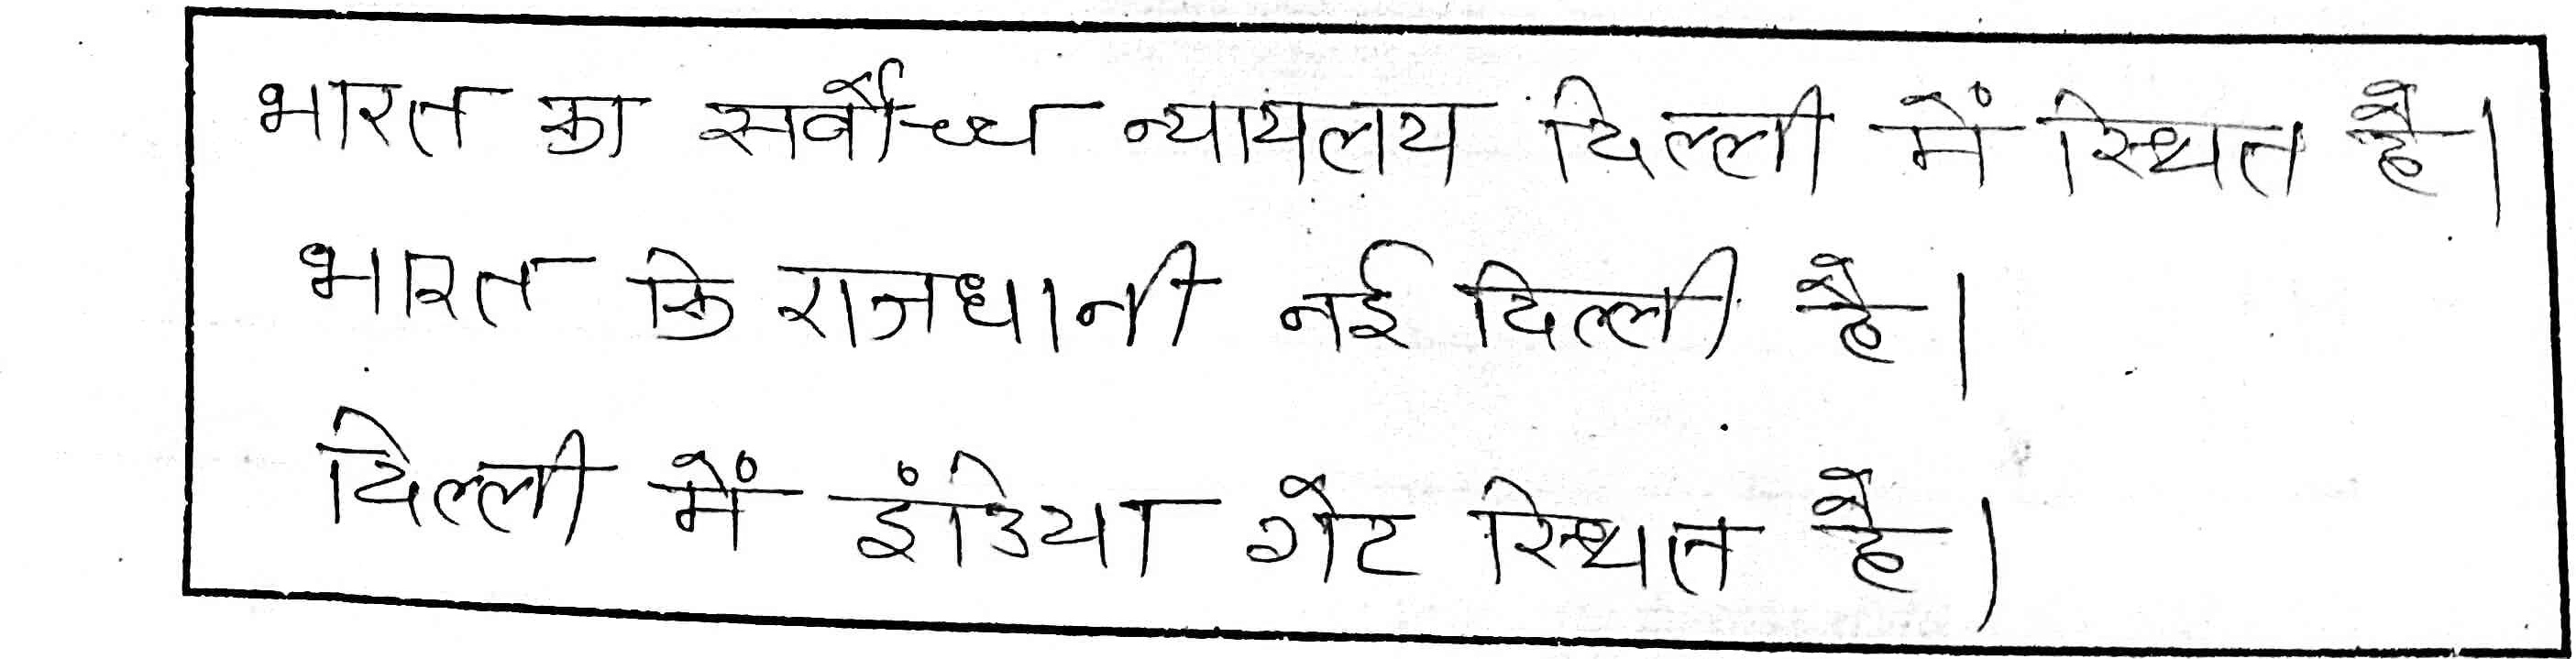 भारत का सर्वोच्च न्यायलय दिल्ली में स्थित है।
भारत कि राजधानी नई दिल्ली है।
दिल्ली में इंडिया गेट स्थित है।